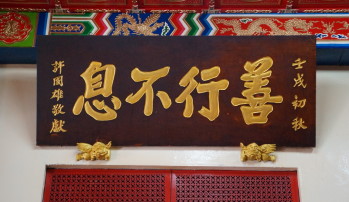 壬戌初秋
善行不息
許國雄敬獻